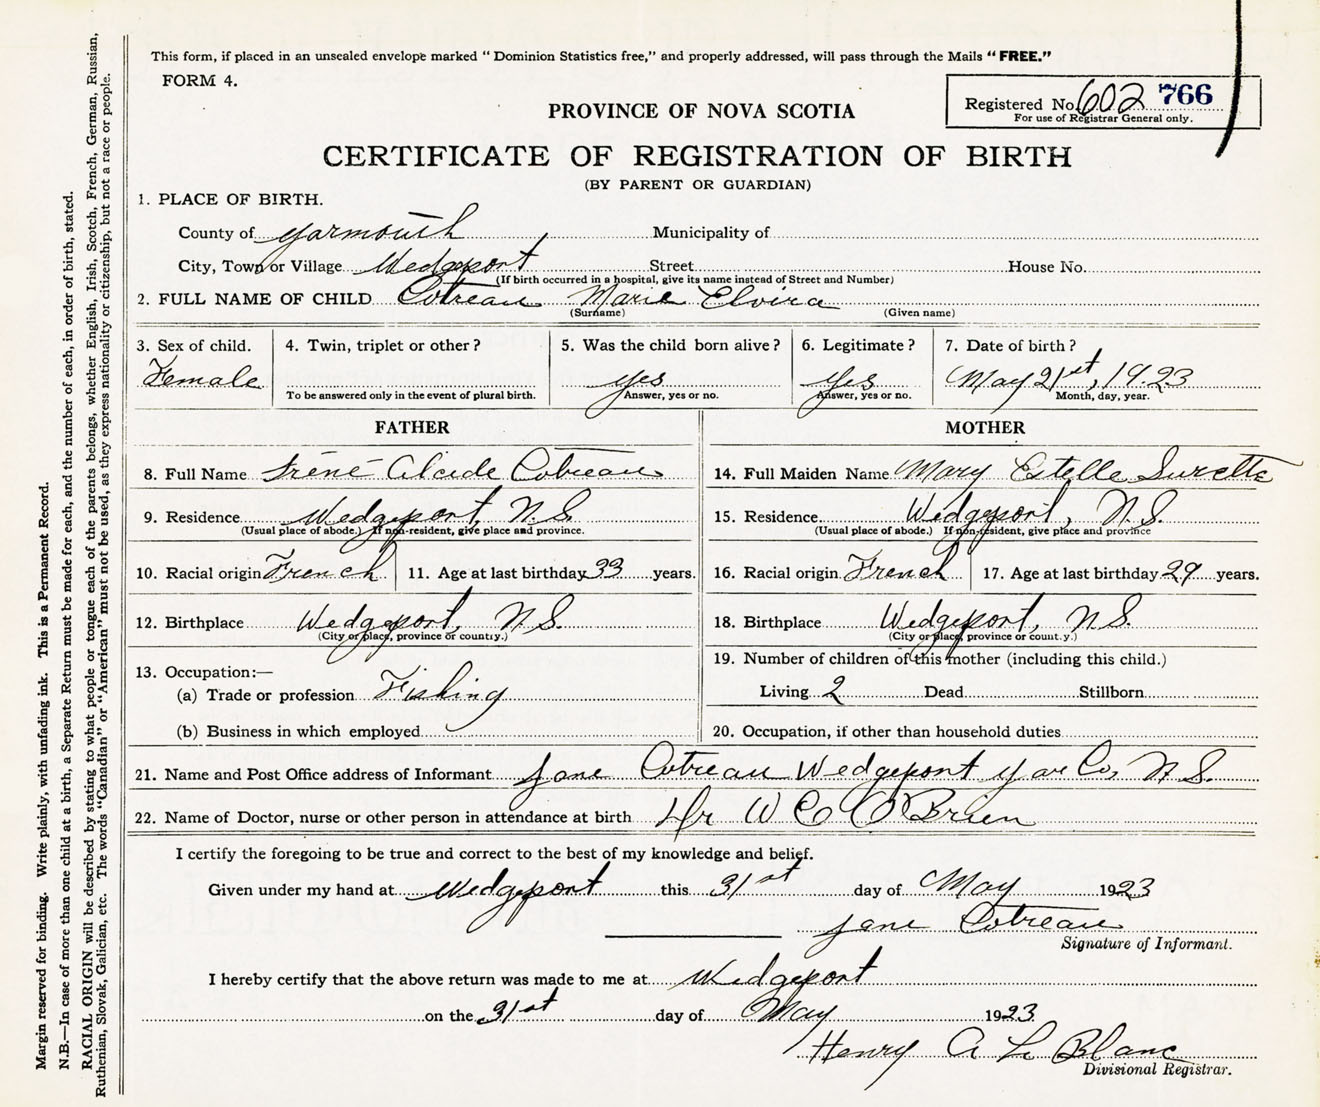 This form, if placed in an unsealed envelope marked “ Dominion Statistics free,” and properly addressed, will pass through the Mails “ FREE.”
FORM 4.
Registered No. 602 766
For use of Registrar General only.
PROVINCE OF NOVA SCOTIA
CERTIFICATE OF REGISTRATION OF BIRTH
(BY PARENT OR GUARDIAN)
1. PLACE OF BIRTH.
County of Yarmouth Municipality of
City, Town or Village Wedgeport Street House No.
(If birth occurred in a hospital, give its name instead of Street and Number)
2. FULL NAME OF CHILD Cotreau Marie Elvira
(Surname) (Given name)
3. Sex of child. 4. Twin, triplet or other? 5. Was the child born alive? 6. Legitimate? 7. Date of birth?
Female yes yes May 21st, 1923
To be answered only in the event of plural birth. Answer, yes or no. Answer, yes or no. Month, day, year.
FATHER MOTHER
8. Full Name Iréné Alcide Cotreau 14. Full Maiden Name Mary Estelle Surette
9. Residence Wedgeport, N.S. 15. Residence Wedgeport, N.S.
(Usual place of abode.) If non-resident, give place and province. (Usual place of abode.) If non-resident, give place and province
10. Racial origin French 11. Age at last birthday 33 years. 16. Racial origin French 17. Age at last birthday 29 years.
12. Birthplace Wedgeport, N.S. 18. Birthplace Wedgeport, N.S.
(City or place, province or country.) (City or place, province or count.y.)
13. Occupation:— 19. Number of children of this mother (including this child.)
(a) Trade or profession Fishing Living 2 Dead Stillborn
(b) Business in which employed 20. Occupation, if other than household duties
21. Name and Post Office address of Informant Jane Cotreau Wedgeport Yar Co, N.S.
22. Name of Doctor, nurse or other person in attendance at birth Dr W C O'Brien
I certify the foregoing to be true and correct to the best of my knowledge and belief.
Given under my hand at Wedgeport this 31st day of May 1923
Jane Cotreau
Signature of Informant.
I hereby certify that the above return was made to me at Wedgeport
on the 31st day of May 1923
Henry A Le Blanc
Divisional Registrar.
Margin reserved for binding. Write plainly, with unfading ink. This is a Permanent Record.
N.B.—In case of more than one child at a birth, a Separate Return must be made for each, and the number of each, in order of birth, stated.
RACIAL ORIGIN will be described by stating to what people or tongue each of the parents belongs, whether English, Irish, Scotch, French, German, Russian,
Ruthenian, Slovak, Galician, etc. The words “Canadian” or “American” must not be used, as they express nationality or citizenship, but not a race or people.